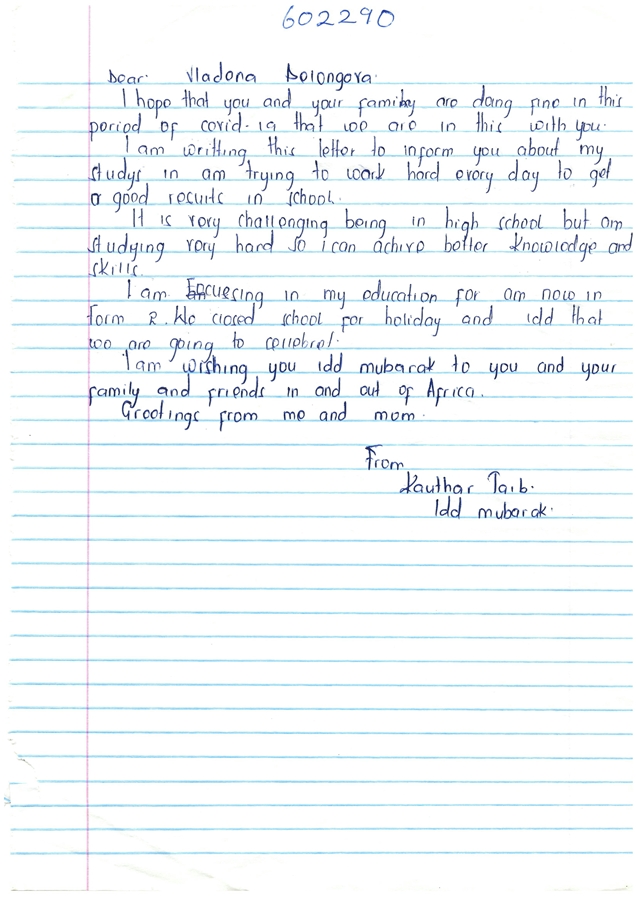 602290
Dear Vladona Bolongova.
I hope that you and your family are doing fine in this
period of covid-19 that we are in this with you.
I am writting this letter to inform you about my
studys in am trying to work hard every day to get
a good resuits in school.
It is very challenging being in high school but am
studying very hard so i can achive better knowledge and
skills.
I am Focuesing in my education for am now in
form 2. We closed school for holiday and idd that
we are going to cerrebrat.
I am wishing you idd mubarak to you and your
family and friends in and out of Africa.
Greetings from me and mom.
From
Kauthar Taib.
Idd mubarak.